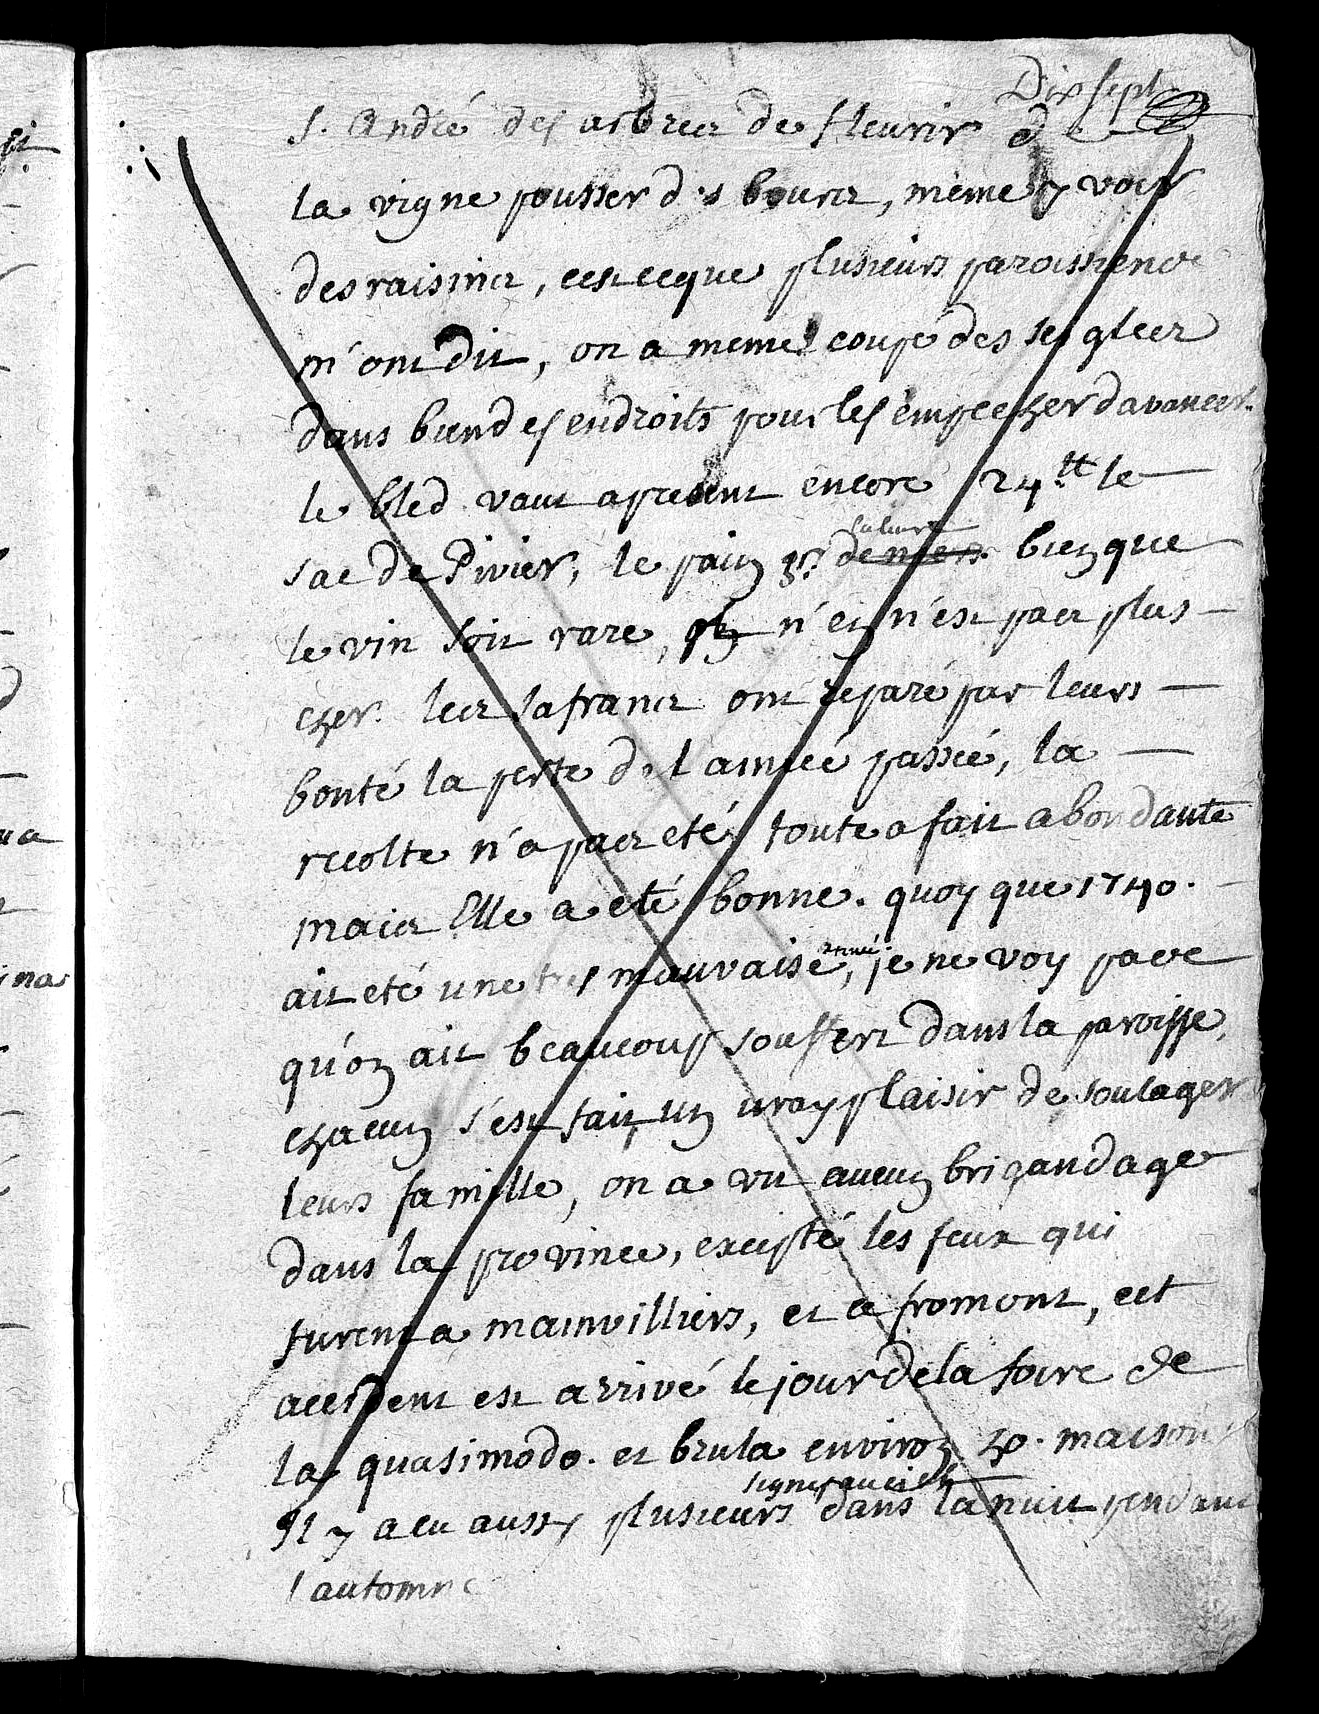 Dix sept
S. André des arbres de fleurir et
la vigne pousser des bours, meme y voir
des raisins, cest ceque plusieurs paroissiens
m'ont dit, on a meme coupé des seigles
dans bien des endroits pour les empecher davancer.
le bled vaut apresent encore 24.tt le
sac de Pivier, le pain 3s. deniers. bien que
la livre
le vin soit rare, n'en n'est pas plus
cher. les safrans ont reparé par leurs
bonté la perte de l'année passée, la
recolte n'a pas eté toute a fait abondante
mais Elle a eté bonne. quoy que 1740.
ait eté une tres mauvaise, je ne voy pas
année.
qu'on ait beaucoup souffert dans la paroisse,
chacun s'est fait un vray plaisir de soulager
leurs famille, on a vu aucun brigandage
dans la province, excepté les feux qui
furent a mainvilliers, et a fromont, cet
accident est arrivé le jour de la foire de
la quasimodo. et brula environ maisons
signes au ciel
Il y a eu aussy plusieurs dans la nuit pendant
l'automne